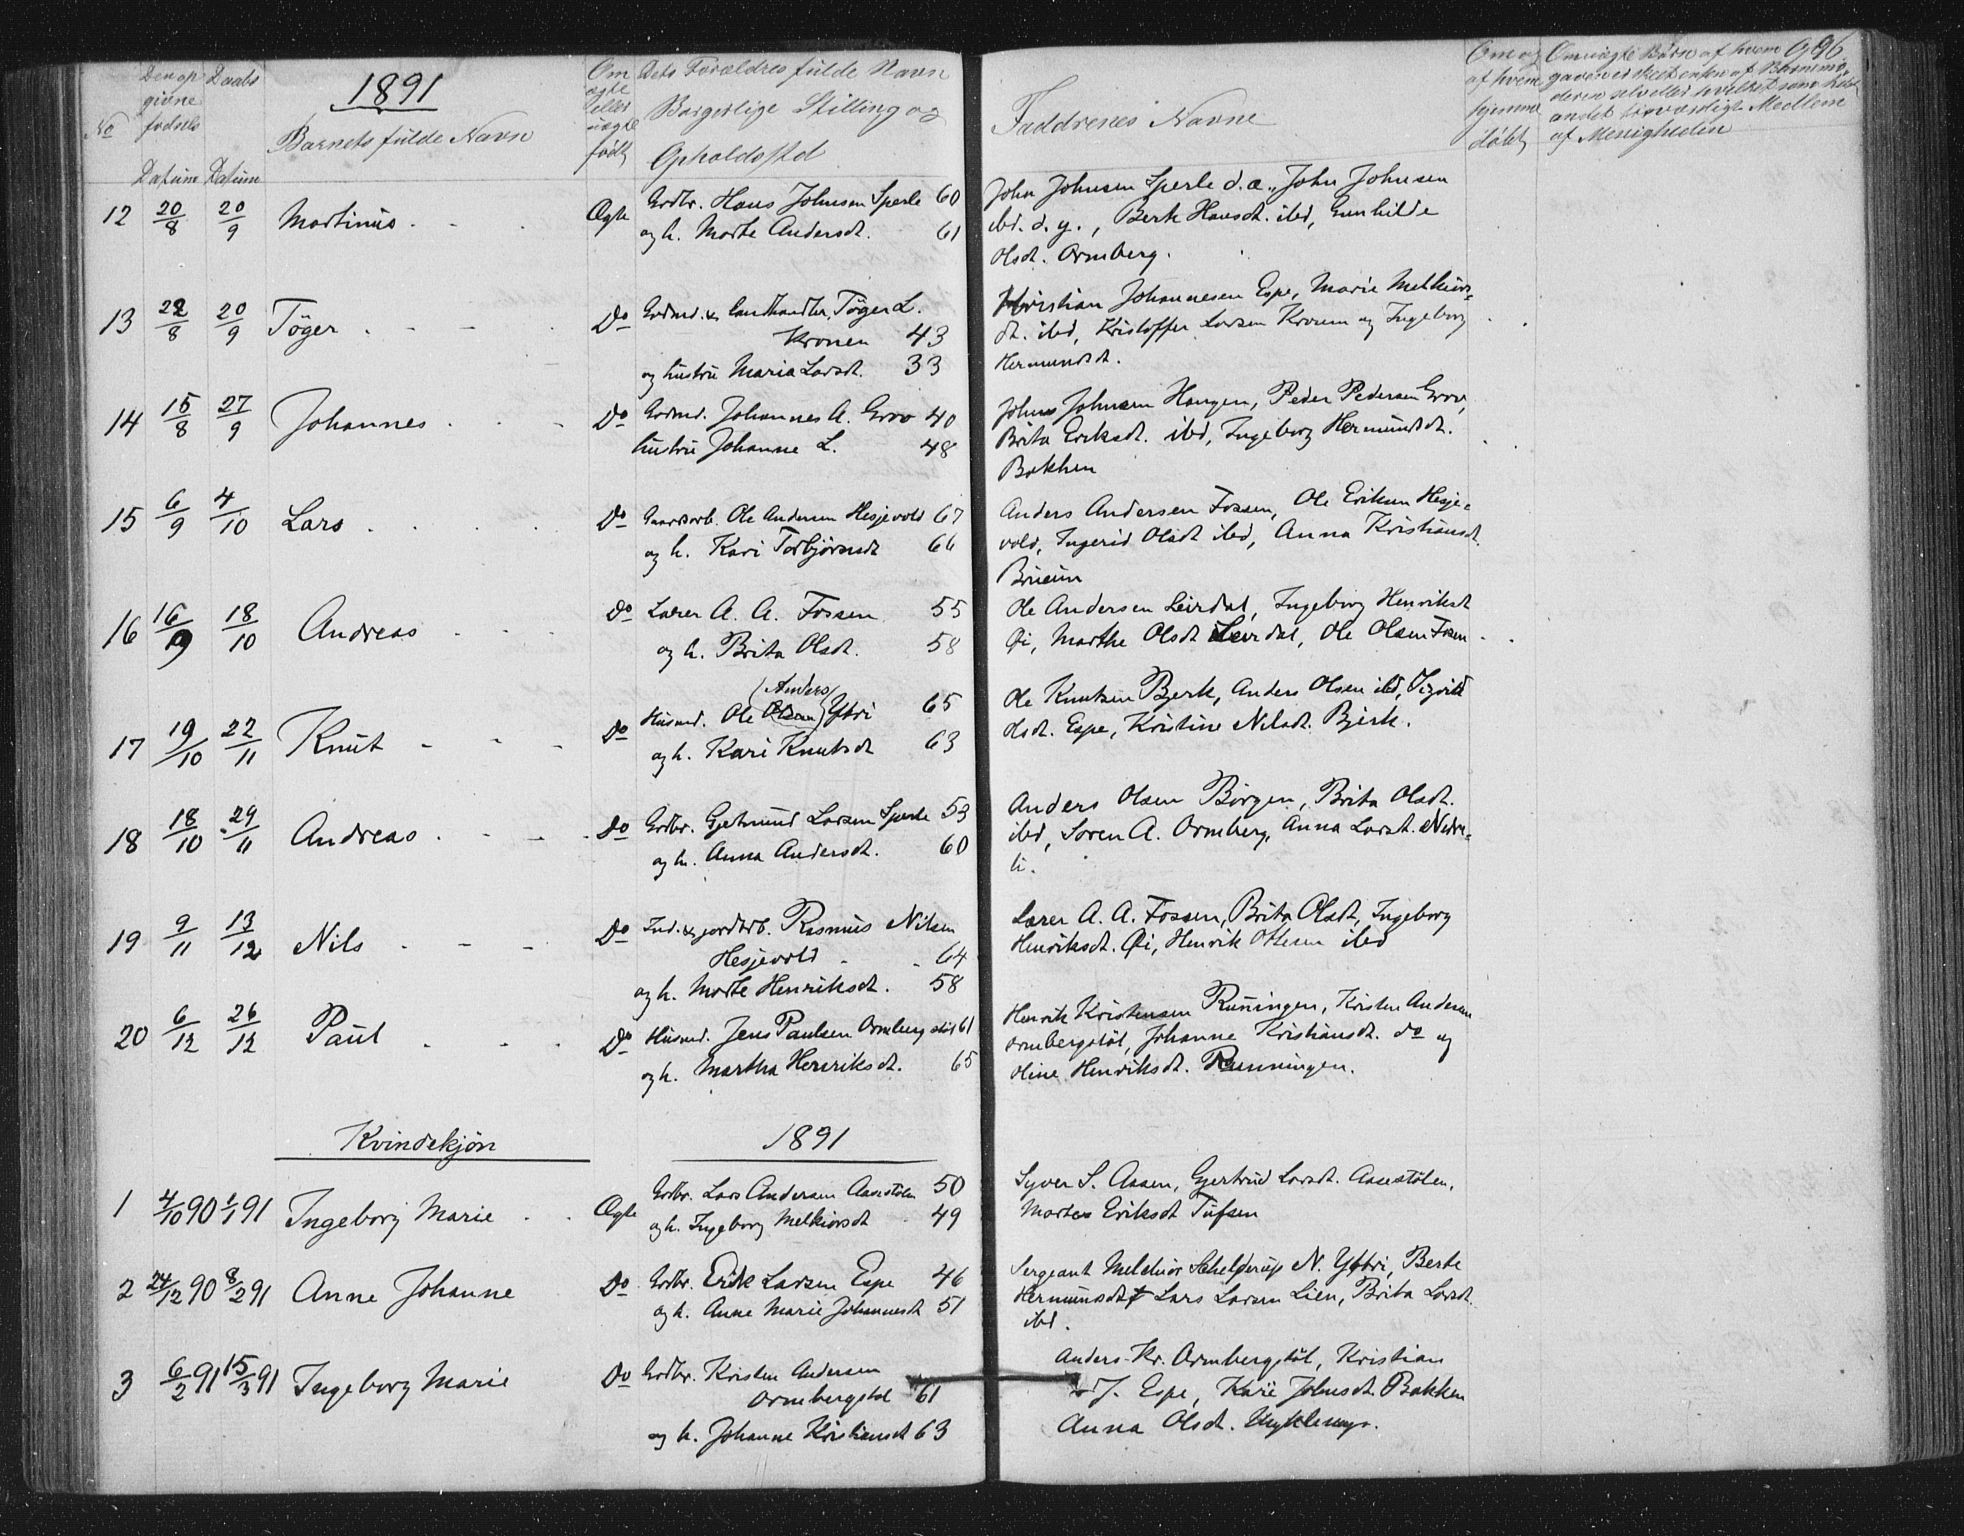 1891
No
Den op Daabs
givne
fødsels
Datum Datum
Barnets fulde Navn
Om
ægte
eller
uægte
født
Dets Forældres fulde Navn
Borgerlige Stilling og
Opholdsted
Faddrenes Navne
Om og
af hvem
hjemme
døbt
Om uægte Børn af hvem Op
gaven er skeet enten af Barnemo
deren selv eller hvilket som helst
andet troværdigt Medlem
af Menigheden
96
12 20/8 20/9 Martinus Ægte Grdbr. Hans Johnsen Sperle 60
og h. Marte Andersdt. 61
John Johnsen Sperle d.æ., John Johnsen
ibd. d.y., Berte Hansdt. ibd, Gunhilde
Olsdt. Ormberg.
13 22/8 20/9 Tøger Do Grdmd. & Landhandler Tøger L.
Kronen 43
og hustru Maria Larsdt. 33
Kristian Johannesen Espe, Marie Melkiors-
dt. ibd, Kristoffer Larsen Kronen og Ingeborg
Hermundsdt.
14 15/8 27/9 Johannes Do Grdmd. Johannes A. Grov 40
hustru Johanne L. 48
Johns Johnsen Haugen, Peder Pedersen Grov,
Brita Eriksdt. ibd, Ingeborg Hermundsdt.
Bakken
15 6/9 4/10 Lars Do Gaardarb. Ole Andersen Hesjevold 67
og h. Kari Torbjørnsdt 66
Anders Andersen Fossen, Ole Eriksen Hesje-
vold, Ingerid Olsdt ibd, Anna Kristiansdt.
Bruum
16 16/9 18/10 Andreas Do Lærer A. A. Fossen 55
og h. Brita Olsdt. 58
Ole Andersen Leirdal, Ingeborg Henriksdt
Øi, Marthe Olsdt Leirdal, Ole Olsen Fosen
17 19/10 22/11 Knut Do Husmd. Ole (Olsen) Yttri 65
(Anders)
og h. Kari Knutsdt 63
Ole Knutsen Bjerk, Anders Olsen ibd, Sigvild
Olsdt. Espe, Kristine Nilsdt. Bjerk.
18 18/10 29/11 Andreas Do Grdbr. Gjetmund Larsen Sperle 53
og h. Anna Andersdt. 60
Anders Olsen Børgen, Brita Olsdt.
ibd, Søren A. Ormberg, Anna Larsdt. Nedre-
li.
19 9/11 13/12 Nils Do Ind. & jordarb. Rasmus Nilsen
Hesjevold 64
og h. Marte Henriksdt. 58
Lærer A. A. Fossen, Brita Olsdt, Ingeborg
Henriksdt. Øi, Henrik Ottesen ibd
20 6/12 26/12 Paul Do Husmd. Jens Paulsen Ormberg støl 61
og h. Martha Henriksdt. 65
Henrik Kristensen Runningen, Kristen Andersen
Ormbergstøl, Johanne Kristiansdt. do og
Oline Henriksdt. Runningen.
Kvindekjøn 1891
1 4/10 90 1/1 91 Ingeborg Marie Ægte Grdbr. Lars Andersen Aasestølen 50
og h. Ingeborg Melkiorsdt 49
Syver S. Aasen, Gjertrud Larsdt. Aasestølen,
Martes Eriksdt Tufsen
2 24/12 90 8/2 91 Anne Johanne Do Grdbr. Erik Larsen Espe 46
og h. Anne Marie Johannesdt 51
Sergeant Melchior Schelderup N. Yttri, Berte
Hermundsdt Lars Larsen Lien, Brita Larsdt.
ibd.
3 6/2 91 15/3 91 Ingeborg Marie Do Grdbr. Kristen Andersen
Ormbergstøl 61
og h. Johanne Kristiansdt 63
Anders Kr. Ormbergstøl, Kristian
J. Espe, Kari Johnsdt. Bakken
Anna Olsdt.